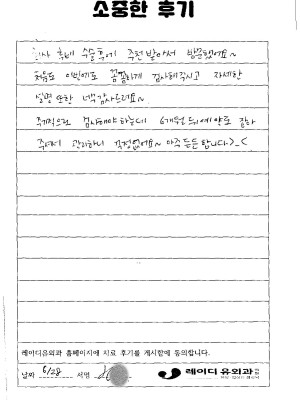 소중한 후기
회사 후배 수술후기 추천 받아서 방문했어요~
처음도 이번에도 꼼꼼하게 검사해주시고 자세한
설명 또한 너무 감사드려요~
주기적으로 검사해야 하는데 6개월 뒤 예약도
주셔서 관리하니 걱정없어요~ 아주 든든합니다>_<
레이디유외과 홈페이지에 치료 후기를 게시함에 동의합니다.
날짜 6/28 서명
레이디유외과